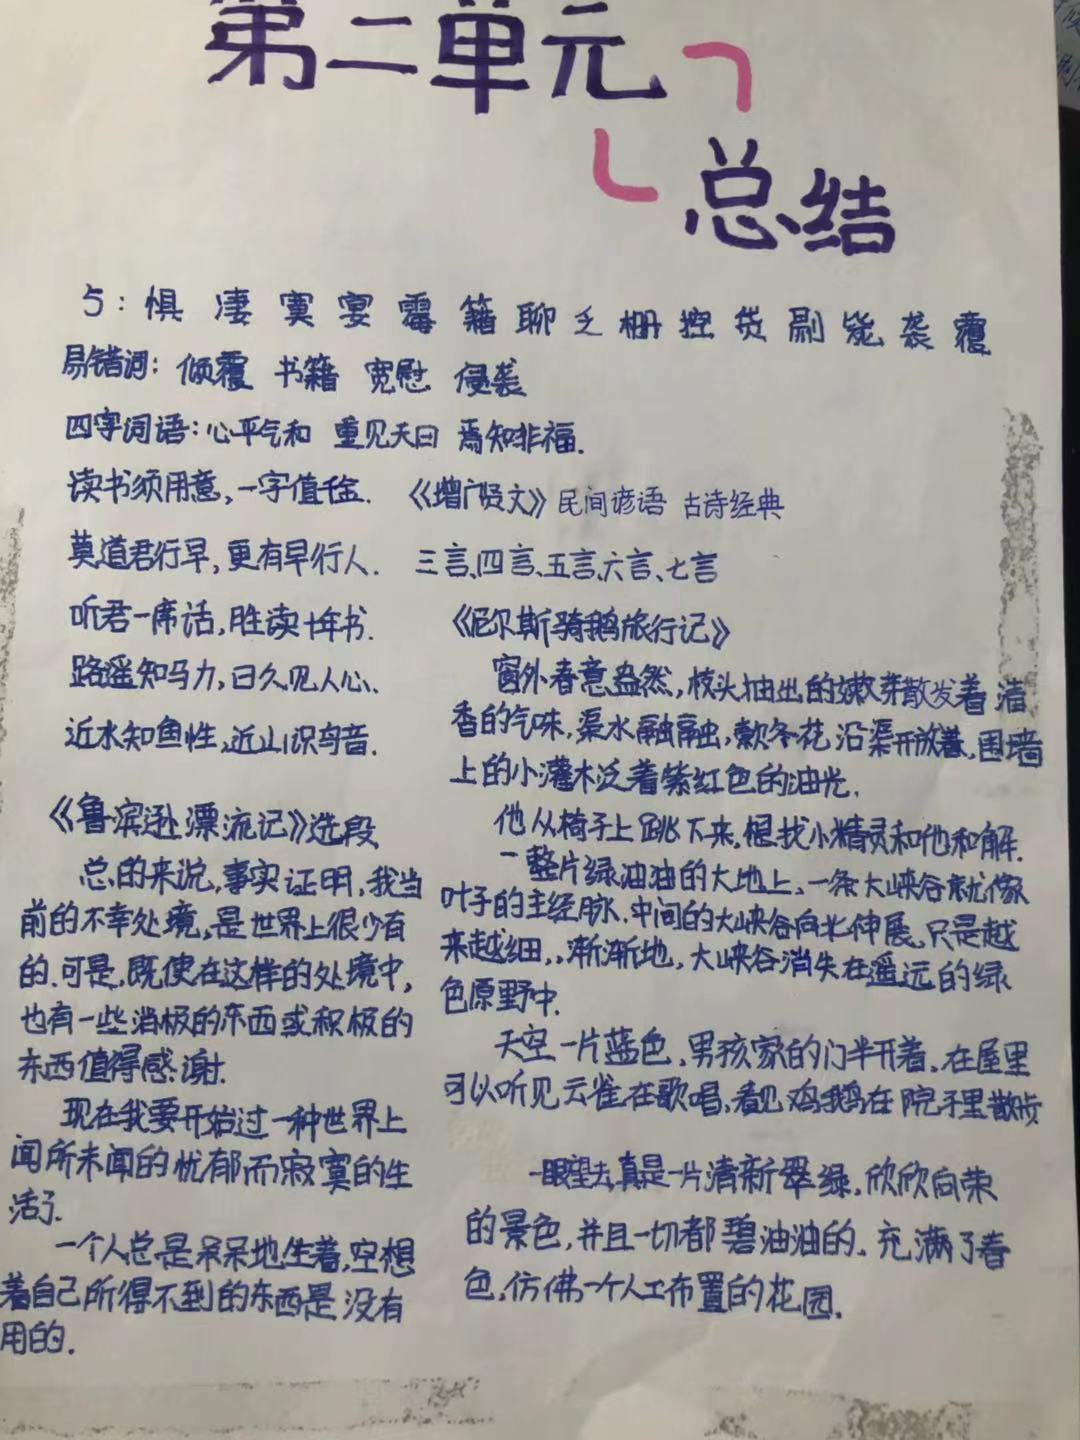 第二单元
总结
5：惧 凄 寞 宴 霉 籍 聊 乏 栅 控 贷 剧 能 袭 覆
易错词：倾覆 书籍 宽慰 侵袭
四字词语：心平气和 重见天日 焉知非福.
读书须用意，一字值千金.
莫道君行早，更有早行人.
听君一席话，胜读十年书.
路遥知马力，日久见人心.
近水知鱼性，近山识鸟音.
《鲁滨逊漂流记》选段
总的来说，事实证明，我当
前的不幸处境，是世界上很少有
的.可是，既使在这样的处境中，
也有一些消极的东西或积极的
东西值得感谢.
现在我要开始过一种世界上
闻所未闻的忧郁而寂寞的生
活了.
一个人总是呆呆地坐着，空想
着自己所得不到的东西是没有
用的.
《增广贤文》民间谚语 古诗经典
三言、四言、五言、六言、七言
《尼尔斯骑鹅旅行记》
窗外春意盎然，枝头抽出的嫩芽散发着清
香的气味，渠水融融，款冬花沿渠开放着，围墙
上的小灌木泛着紫红色的油光.
他从椅子上跳下来，想找小精灵和他和解.
一整片绿油油的大地上，一条大峡谷就像
叶子的主经脉.中间的大峡谷向北伸展，只是越
来越细，渐渐地，大峡谷消失在遥远的绿
色原野中.
天空一片蓝色，男孩家的门半开着，在屋里
可以听见云雀在歌唱，看见鸡鹅在院子里散步
一眼望去，真是一片清新翠绿，欣欣向荣
的景色，并且一切都碧油油的，充满了春
色，仿佛一个人工布置的花园.